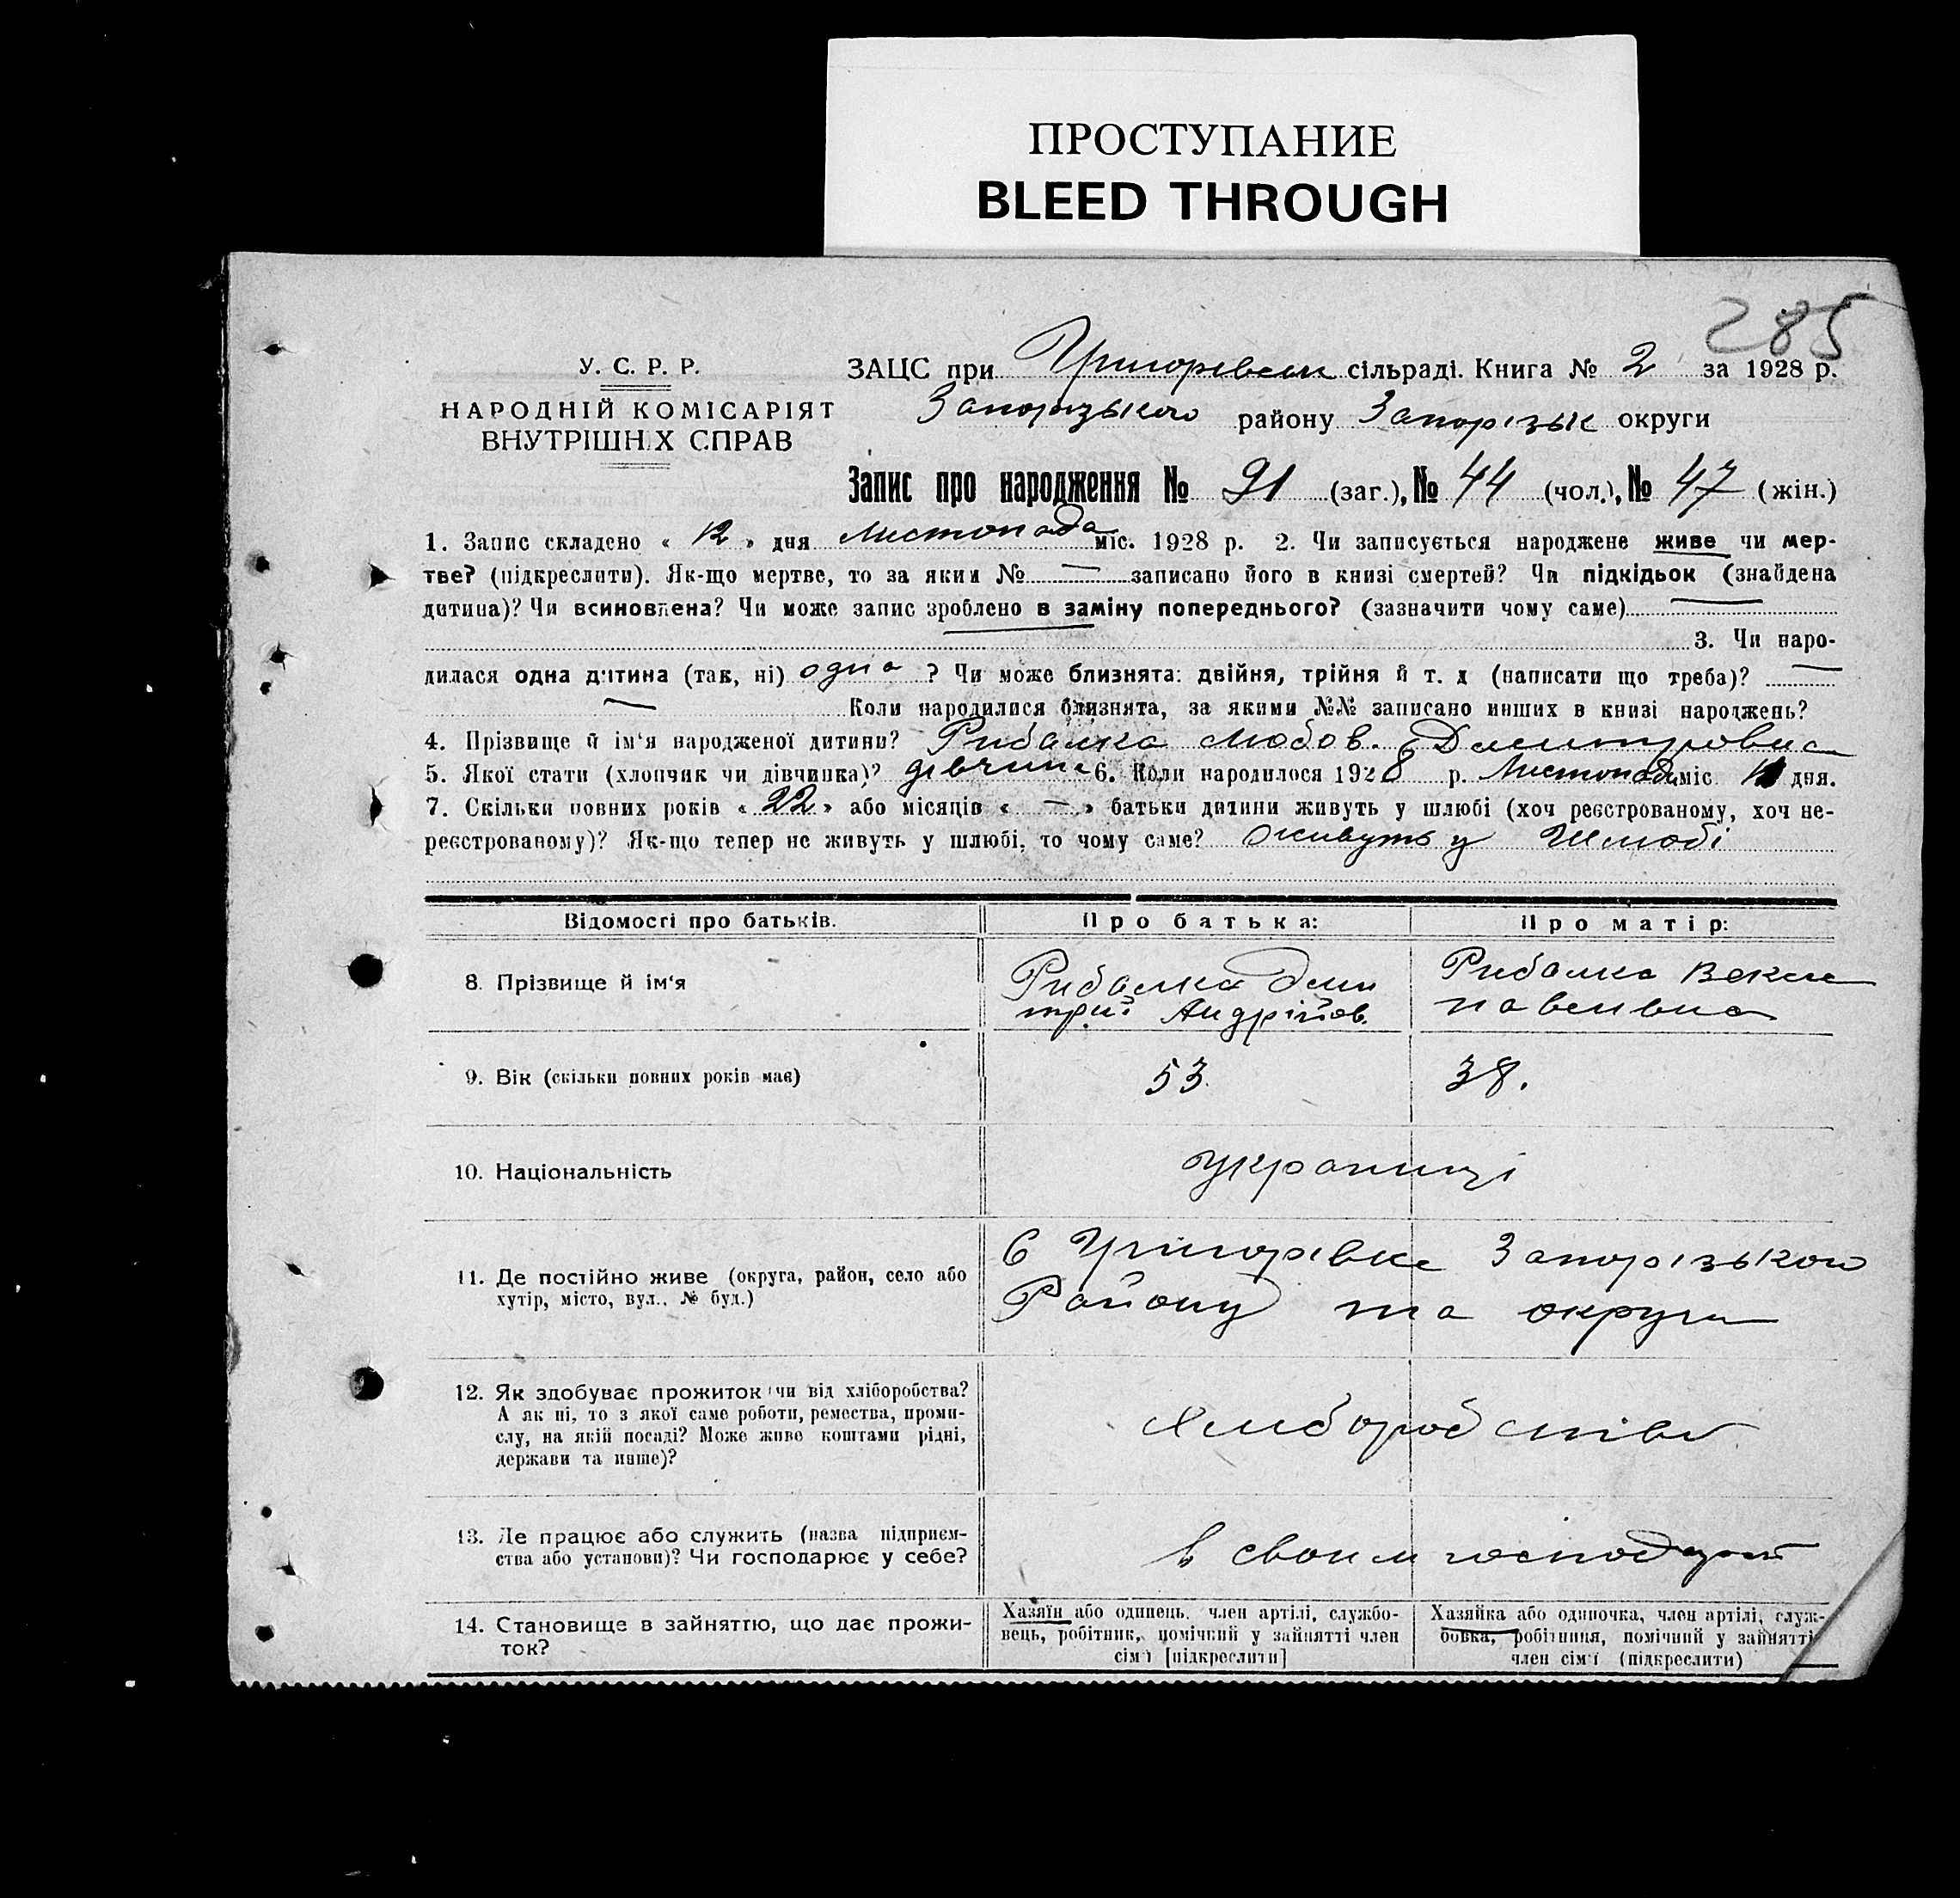 ПРОСТУПАНИЕ
BLEED THROUGH
285
У. С. Р. Р.
НАРОДНІЙ КОМІСАРІЯТ
ВНУТРІШНІХ СПРАВ
ЗАЦС при Григорівськ сільраді. Книга № 2 за 1928 р.
Запорізького району Запорізьк округи
Запис про народження № 91 (заг.), № 44 (чол.), № 47 (жін.)
1. Запис складено « 12 » дня Листопада міс. 1928 р. 2. Чи записується народжене живе чи мер-
тве? (підкреслити). Як-що мертве, то за яким № — записано його в книзі смертей? Чи підкідьок (знайдена
дитина)? Чи всиновлена? Чи може запис зроблено в заміну попереднього? (зазначити чому саме) —
3. Чи наро-
дилася одна дитина (так, ні) одна ? Чи може близнята: двійня, трійня й т. д (написати що треба)? —
— Коли народилися близнята, за якими №№ записано инших в книзі народжень?
4. Прізвище й ім'я народженої дитини? Рибалка Любов. Дмитровна
5. Якої стати (хлопчик чи дівчинка)? дівчина 6. Коли народилося 1928 р. Листопада міс. дня.
7. Скільки повних років « 22 » або місяців « — » батьки дитини живуть у шлюбі (хоч реєстрованому, хоч не-
реєстрованому)? Як-що тепер не живуть у шлюбі, то чому саме? живуть у Шлюбі
Відомості про батьків.
Про батька:
Про матір:
8. Прізвище й ім'я
Рибалка Дми
трий Андрійов.
Рибалка Векла
павливна
9. Вік (скільки повних років має)
53.
38.
10. Національність
українці
11. Де постійно живе (округа, район, село або
хутір, місто, вул., № буд.)
С Григорівка Запорізького
Району та округи
12. Як здобуває прожиток чи від хліборобства?
А як ні, то з якої саме роботи, ремества, проми-
слу, на якій посаді? Може живе коштами рідні,
держави та инше)?
Хлиборобство
13. Де працює або служить (назва підприєм-
ства або установи)? Чи господарює у себе?
в своим
14. Становище в зайняттю, що дає прожи-
ток?
Хазяїн або одинець, член артілі, службо-
вець, робітник, помічний у зайнятті член
сім'ї [підкреслити]
Хазяйка або одиночка, член артілі, служ-
бовка, робітниця, помічний у зайнятті
член сім'ї (підкреслити)